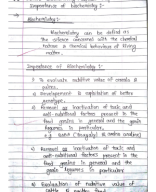 Importance of biochemistry :-
Biochemistry :-
Biochemistry can be defined as
the science concerned with the chemical
nature & chemical behaviour of living
matter.
Importance of Biochemistry :-
To evaluate nutritive value of
Development & exploitation of better
genotype.
Removal or inactivation of toxic and
anti-nutritional factors present in the
food grains in general and the grain
legumes in particular.
e.g.
Removal or inactivation of toxic and
anti-nutritional factors present in the
food grains in general and the
grain legumes in particular
Evaluation of nutritive value of